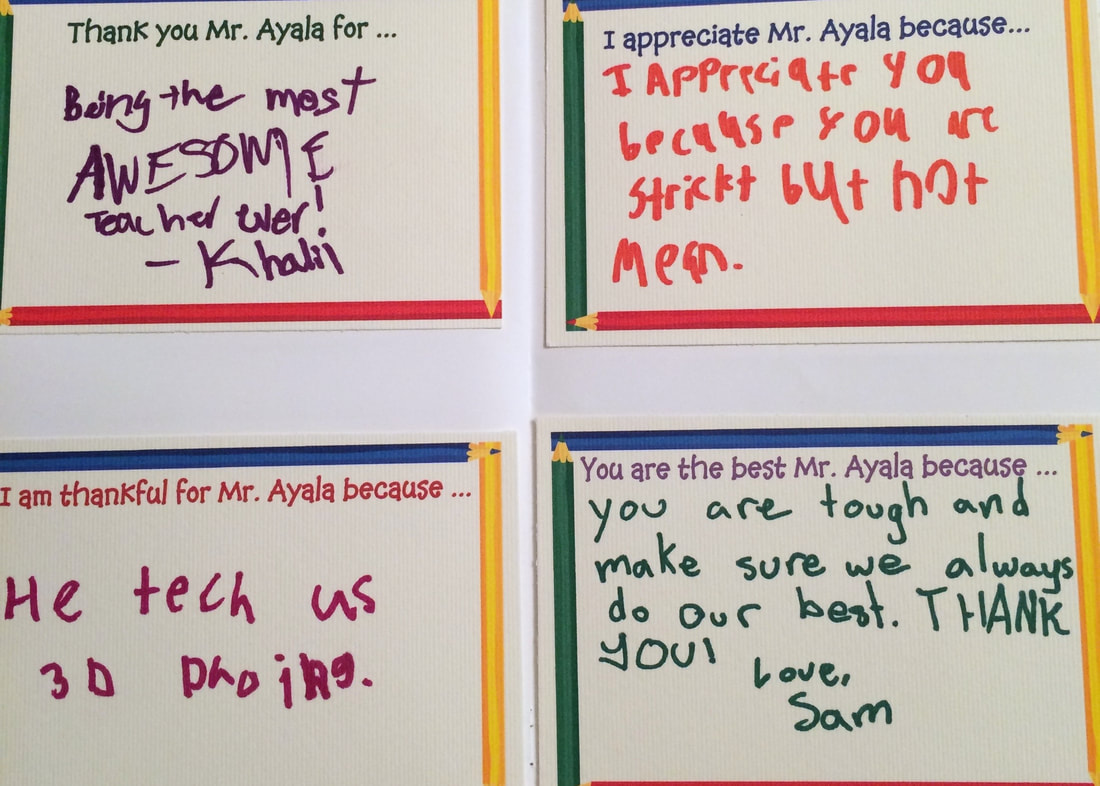 Thank you Mr. Ayala for ...
Being the most
AWESOME
teacher ever!
- Khalil
I appreciate Mr. Ayala because...
I Appreciate you
because you are
strickt but not
mean.
I am thankful for Mr. Ayala because ...
He tech us
3D
You are the best Mr. Ayala because ...
you are tough and
make sure we always
do our best. THANK
YOU!
Love,
Sam